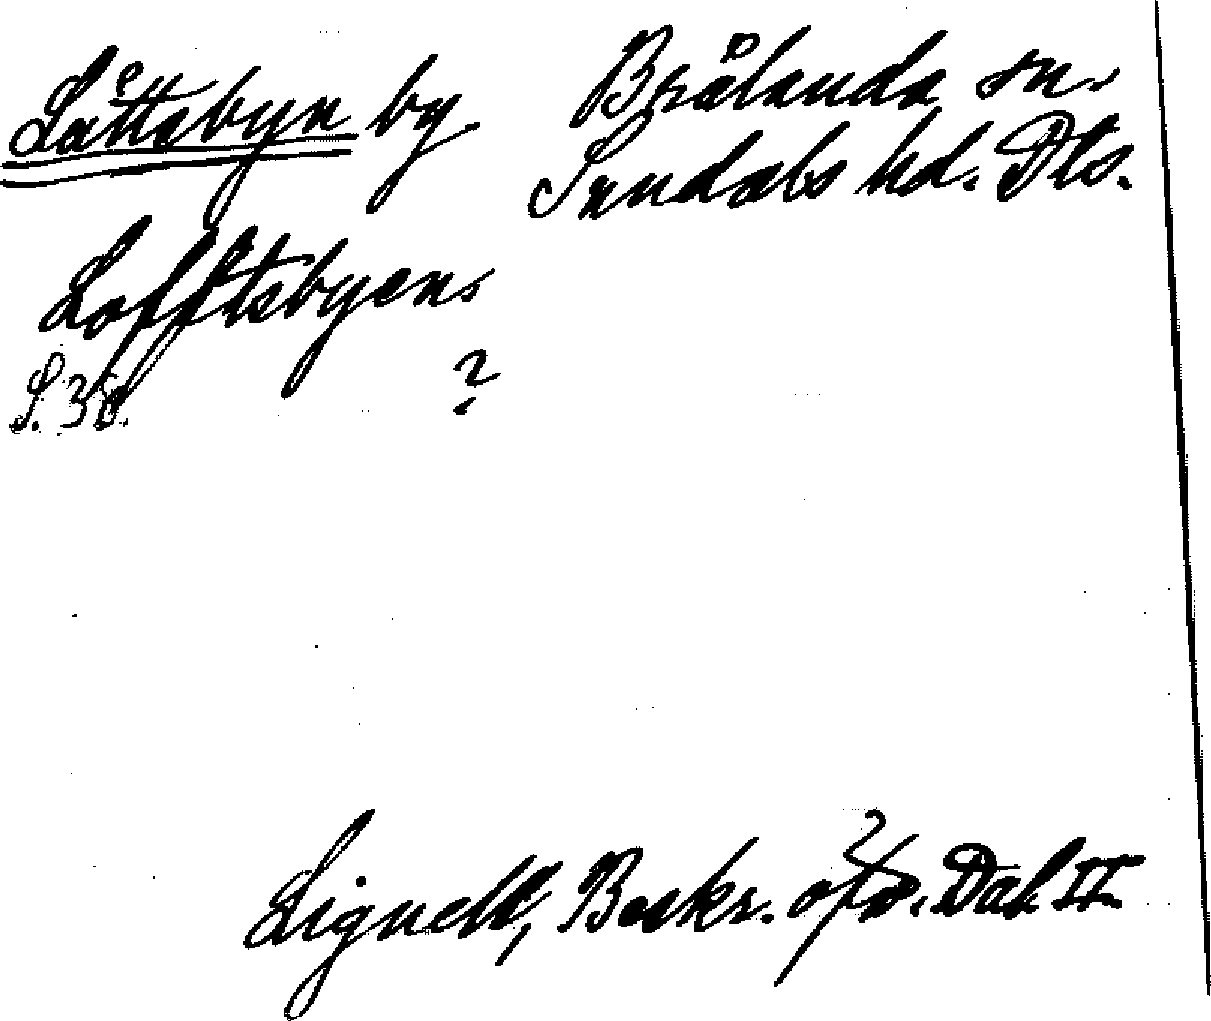 Låttsbyn by Brålanda sn.
Sundals hd. Dls.
Lofftsbyen.
S. 38. ?
Lignell, Beskr. öfv. Dal II